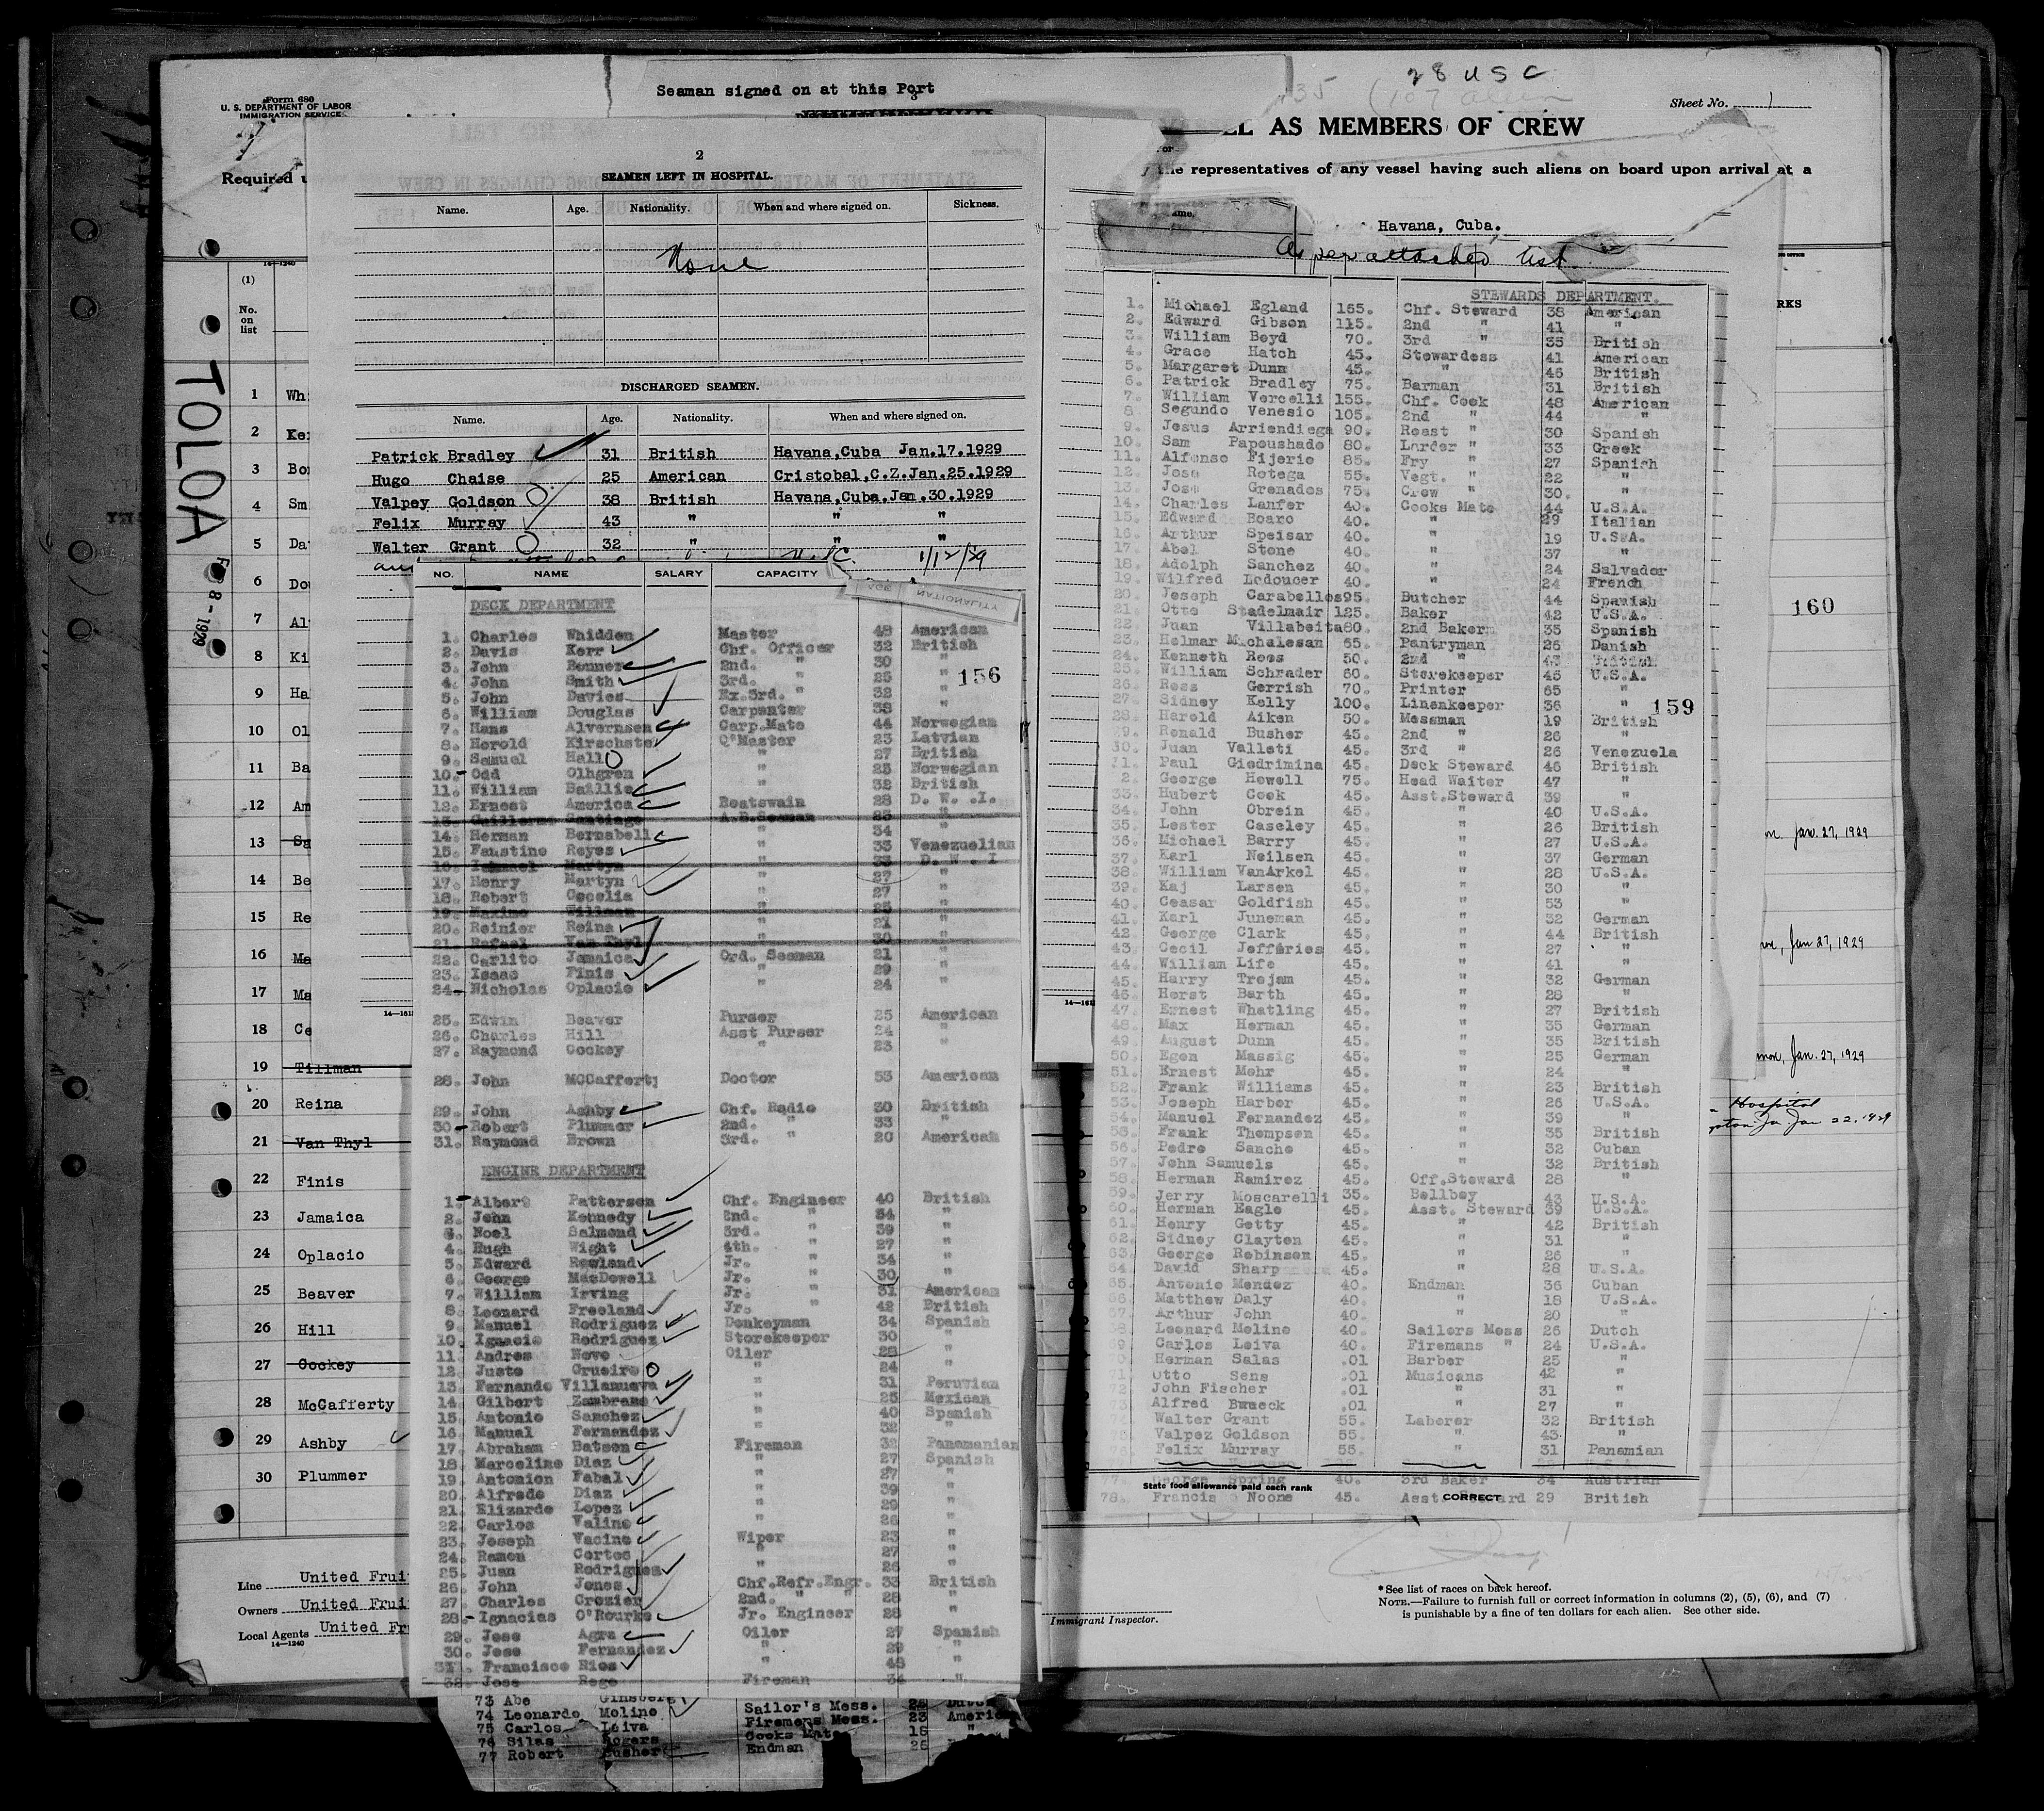 Form 680
U. S. DEPARTMENT OF LABOR
IMMIGRATION SERVICE
Required
14—1240
(1)
No.
on
list
TOLOA
FEB 8 - 1929
1 Whi
2 Ker
3 Bon
4 Smi
5 Da
6 Dou
7 Al
8 Ki
9 Ha
10 Ol
11 Ba
12 Am
13 Sa
14 Be
15 Re
16 Ma
17 Ma
18 Ce
19 Tillman
20 Reina
21 Van Thyl
22 Finis
23 Jamaica
24 Oplacio
25 Beaver
26 Hill
27 Cockey
28 McCafferty
29 Ashby
30 Plummer
Line United Frui
Owners United Frui
Local Agents United Fr
14—1240
Seaman signed on at this Port
2
SEAMEN LEFT IN HOSPITAL.
Name. Age. Nationality. When and where signed on. Sickness.
None
DISCHARGED SEAMEN.
Name. Age. Nationality. When and where signed on.
Patrick Bradley 31 British Havana,Cuba Jan.17.1929
Hugo Chaise 25 American Cristobal,C.Z.Jan.25.1929
Valpey Goldson 38 British Havana,Cuba.Jan.30.1929
Felix Murray 43 " " "
Walter Grant 32 " " "
1/12/29
NO. NAME SALARY CAPACITY AGE NATIONALITY
DECK DEPARTMENT
1. Charles Whidden Master 48 American
2. Davis Kerr Chf. Officer 32 British
3. John Benner 2nd. " 30 "
4. John Smith 3rd. " 25 "
156
5. John Davies Ex.3rd. " 32 "
6. William Douglas Carpenter 38 "
7. Hans Alvernsen Carp.Mate 44 Norwegian
8. Herold Kirschste Q'Master 23 Latvian
9. Samuel Hall " 27 British
10. Odd Olhgren " 25 Norwegian
11. William Baillie " 32 British
12. Ernest America Boatswain 28 D. W. .I.
13. Guillermo Santiago A.B.Seaman 25 "
14. Herman Bernabell " 34 "
15. Faustino Reyes " 33 Venezuelian
16. Martyn " 33 D. W . I
17. Henry Martyn " 27 "
18. Robert Cecelia " 27 "
19. Maximo Tillman " 25 "
20. Reinier Reina " 21 "
21. Rafael Van Thyl " 30 "
22. Carlito Jamaica Ord. Seaman 21 "
23. Isaac Finis " 29 "
24. Nicholas Oplacio " 24 "
25. Edwin Beaver Purser 25 American
26. Charles Hill Asst Purser 24 "
27. Raymond Cockey " 23 "
28. John MCCafferty Doctor 53 American
29. John Ashby Chf. Radio 30 British
30. Robert Plummer 2nd. " 33 "
31. Raymond Brown 3rd. " 20 American
ENGINE DEPARTMENT
1. Albert Patterson Chf. Engineer 40 British
2. John Kennedy 2nd. " 54 "
3. Noel Salmond 3rd. " 39 "
4. Hugh Wight 4th. " 27 "
5. Edward Rowland Jr. " 34 "
6. George MacDowell Jr. " 30 "
7. William Irving Jr. " 31 American
8. Leonard Freeland Jr. " 42 British
9. Manuel Rodriguez Donkeyman 34 Spanish
10. Ignacio Rodriguez Storekeeper 30 "
11. Andres Novo Oiler 28 "
12. Justo Grueiro " 24 "
13. Fernando Villanueva " 31 Peruvian
14. Gilbert Zambrano " 25 Mexican
15. Antonio Sanchez " 40 Spanish
16. Manual Fernandez " 32 "
17. Abraham Batson Fireman 32 Panamanian
18. Marceline Diaz " 27 Spanish
19. Antonion Fabal " 27 "
20. Alfredo Diaz " 39 "
21. Elizarde Lopez " 29 "
22. Carlos Valino " 26 "
23. Joseph Vacine Wiper 23 "
24. Ramon Cortes " 27 "
25. Juan Rodrigues " 26 "
26. John Jones Chf.Refr.Engr. 33 British
27. Charles Crozier 2nd. " " 28 "
28. Ignacias O'Rourke Jr. Engineer 28 "
29. Jose Agra Oiler 27 Spanish
30. Jose Fernandez " 29 "
31. Francisco Rios " 48 "
32. Jose Rego Fireman 34 "
73 Abe Ginsberg
74 Leonardo Molino Sailor's Mess. 26 Dutch
75 Carlos Leiva Firemens Mess. 23 Americ
76 Silas Rogers Cooks Mate 18 "
77 Robert Busher Endman 25
28 USC
Sheet No. 1
LL AS MEMBERS OF CREW
the representatives of any vessel having such aliens on board upon arrival at a
Havana, Cuba.
As per attached list
STEWARDS DEPARTMENT.
1. Michael Egland 165. Chf. Steward 38 American
2. Edward Gibson 115. 2nd " 41 "
3. William Boyd 70. 3rd " 35 British
4. Grace Hatch 45. Stewardess 41 American
5. Margaret Dunn 45. " 46 British
6. Patrick Bradley 75. Barman 31 British
7. William Vercelli 155. Chf. Cook 48 American
8 Segundo Venesio 105. 2nd " 44 "
9. Jesus Arriendiega 90. Roast " 30 Spanish
10. Sam Papoushado 80. Larder " 33 Greek
11. Alfonso Fijerio 85. Fry " 27 Spanish
12. Jose Rotega 55. Vegt. " 22 "
13. Jose Grenados 75. Crew " 30. "
14. Charles Lanfer 40. Cooks Mate 44 U.S.A.
15. Edward Boaro 40. " 29 Italian
16. Arthur Speisar 40. " 19 U.S.A.
17. Abel Stone 40. " 37 "
18. Adolph Sanchez 40. " 24 Salvador
19. Wilfred Ledoucer 40. " 24 French
20. Joseph Carabellos95. Butcher 44 Spanish
21. Otto Stadelmair 125. Baker 42 U.S.A.
22. Juan Villabeita80. 2nd Baker 35 Spanish
23. Helmar Michalesan 55. Pantryman 26 Danish
24. Kenneth Roes 50. 2nd " 43 British
25. William Schrader 60. Storekeeper 45 U.S.A.
26. Ross Gerrish 70. Printer 65 "
27. Sidney Kelly 100. Linenkeeper 36 "
159
28. Harold Aiken 50. Messman 19 British
29. Ronald Busher 45. 2nd " 26 "
30. Juan Valleti 45. 3rd " 26 Venezuela
31. Paul Giedrimina 45. Deck Steward 46 British
2. George Howell 75. Head Waiter 47 "
33. Hubert Cook 45. Asst.Steward 39 "
34. John Obrein 45. " 40 U.S.A.
35. Lester Caseley 45. " 26 British
36. Michael Barry 45. " 27 U.S.A.
37. Karl Neilsen 45. " 37 German
38. William VanArkel 45. " 28 U.S.A.
39. Kaj Larsen 45. " 30 "
40. Ceasar Goldfish 45. " 53 "
41. Karl Juneman 45. " 32 German
42. George Clark 45. " 44 British
43. Cecil Jefferies 45. " 27 "
44. William Life 45. " 41 "
45. Harry Trojam 45. " 32 German
46. Horst Barth 45. " 28 "
47. Ernest Whatling 45. " 27 British
48. Max Herman 45. " 35 German
49. August Dunn 45. " 35 British
50. Egon Massig 45. " 25 German
51. Ernest Mohr 45. " 24 "
52. Frank Williams 45. " 23 British
53. Joseph Harbor 45. " 26 U.S.A.
54. Manuel Fernandez 45. " 39 "
55. Frank Thompsen 45. " 35 British
56. Pedro Sancho 45. " 32 Cuban
57. John Samuels 45. " 32 British
58. Herman Ramirez 45. Off.Steward 28 "
59. Jerry Moscarelli 35. Bellboy 43 U.S.A.
60. Herman Eagle 45. Asst. Steward 39 U.S.A.
61. Henry Getty 45. " 42 British
62. Sidney Clayton 45. " 31 "
63. George Robinson 45. " 26 "
64. David Sharp 45. " 28 U.S.A.
65. Antonio Mendez 40. Endman 36 Cuban
66. Matthew Daly 40. " 18 U.S.A.
67. Arthur John 40. " 20 "
68. Leonard Moline 40. Sailors Mess 26 Dutch
69. Carlos Leiva 40. Firemans " 24 U.S.A.
70. Herman Salas .01 Barber 25 "
71 Otto Sens .01 Musicans 42 "
72 John Fischer .01 " 31 "
73 Alfred Bwaeck .01 " 27 "
Walter Grant 55. Laborer 32 British
Valpez Goldson 55. " 43. "
Felix Murray 55. " 31 Panamian
77. George Spring 40. 3rd Baker 34 Austrian
State food allowance paid each rank
CORRECT
78. Francis Noone 45. Asst. Steward 29 British
RKS
160
Jan. 27, 1929
Jan 27, 1929
Jan. 27, 1929
Hospital
Jan 22, 1929
Immigrant Inspector.
* See list of races on back hereof.
NOTE.—Failure to furnish full or correct information in columns (2), (5), (6), and (7)
is punishable by a fine of ten dollars for each alien. See other side.